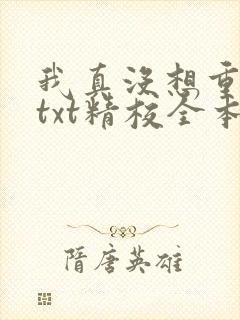 我真没想重
txt精校全本
隋唐英雄